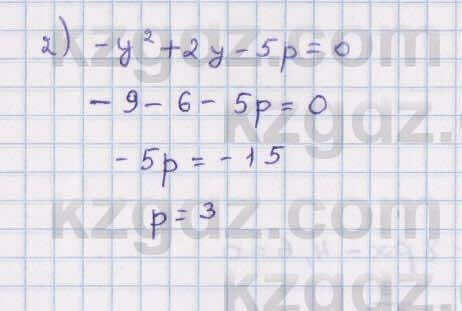 2) -y² + 2y - 5p = 0
- 9 - 6 - 5p = 0
- 5p = - 15
p = 3
kzgdz.com
kzgdz.com
kzgdz.com
kzgdz.com